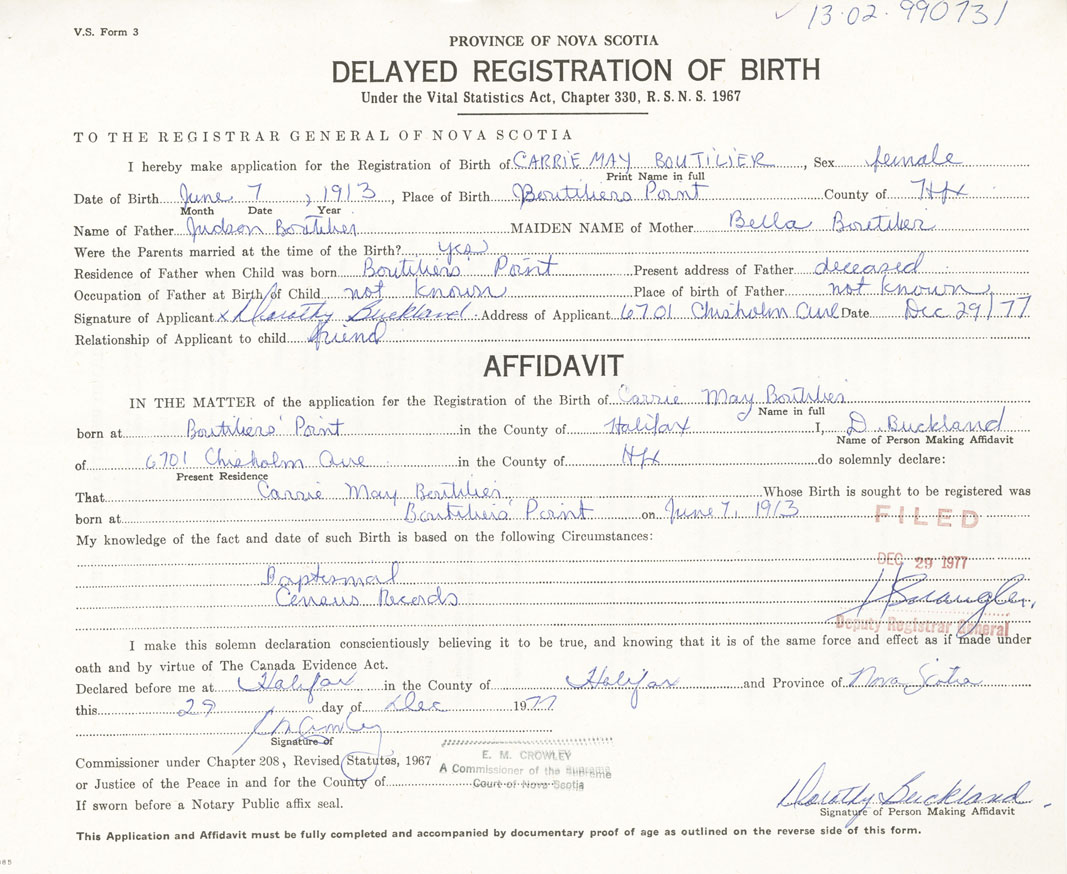 13·02·990731
V.S. Form 3
PROVINCE OF NOVA SCOTIA
DELAYED REGISTRATION OF BIRTH
Under the Vital Statistics Act, Chapter 330, R. S. N. S. 1967
TO THE REGISTRAR GENERAL OF NOVA SCOTIA
I hereby make application for the Registration of Birth of CARRIE MAY BOUTILIER, Sex female
Print Name in full
Date of Birth June 7, 1913, Place of Birth Boutiliers Point County of Hfx
Month Date Year
Name of Father Judson Boutilier MAIDEN NAME of Mother Bella Boutilier
Were the Parents married at the time of the Birth? yes
Residence of Father when Child was born Boutiliers' Point Present address of Father deceased
Occupation of Father at Birth of Child not known Place of birth of Father not known
Signature of Applicant x Dorothy Buckland Address of Applicant 6701 Chisholm Ave Date Dec 29/77
Relationship of Applicant to child friend
AFFIDAVIT
IN THE MATTER of the application for the Registration of the Birth of Carrie May Boutilier
Name in full
born at Boutiliers' Point in the County of Halifax I, D. Buckland
Name of Person Making Affidavit
of 6701 Chisholm Ave in the County of Hfx do solemnly declare:
Present Residence
That Carrie May Boutilier, Whose Birth is sought to be registered was
born at Boutiliers' Point on June 7, 1913
FILED
My knowledge of the fact and date of such Birth is based on the following Circumstances:
DEC 29 1977
Baptismal
Census Records
Deputy Registrar General
I make this solemn declaration conscientiously believing it to be true, and knowing that it is of the same force and effect as if made under
oath and by virtue of The Canada Evidence Act.
Declared before me at Halifax in the County of Halifax and Province of Nova Scotia
this 29 day of Dec 1977
Signature of
Commissioner under Chapter 208, Revised Statutes, 1967
E. M. CROWLEY
A Commissioner of the Supreme
Court of Nova Scotia
or Justice of the Peace in and for the County of
If sworn before a Notary Public affix seal.
Dorothy Buckland
Signature of Person Making Affidavit
This Application and Affidavit must be fully completed and accompanied by documentary proof of age as outlined on the reverse side of this form.